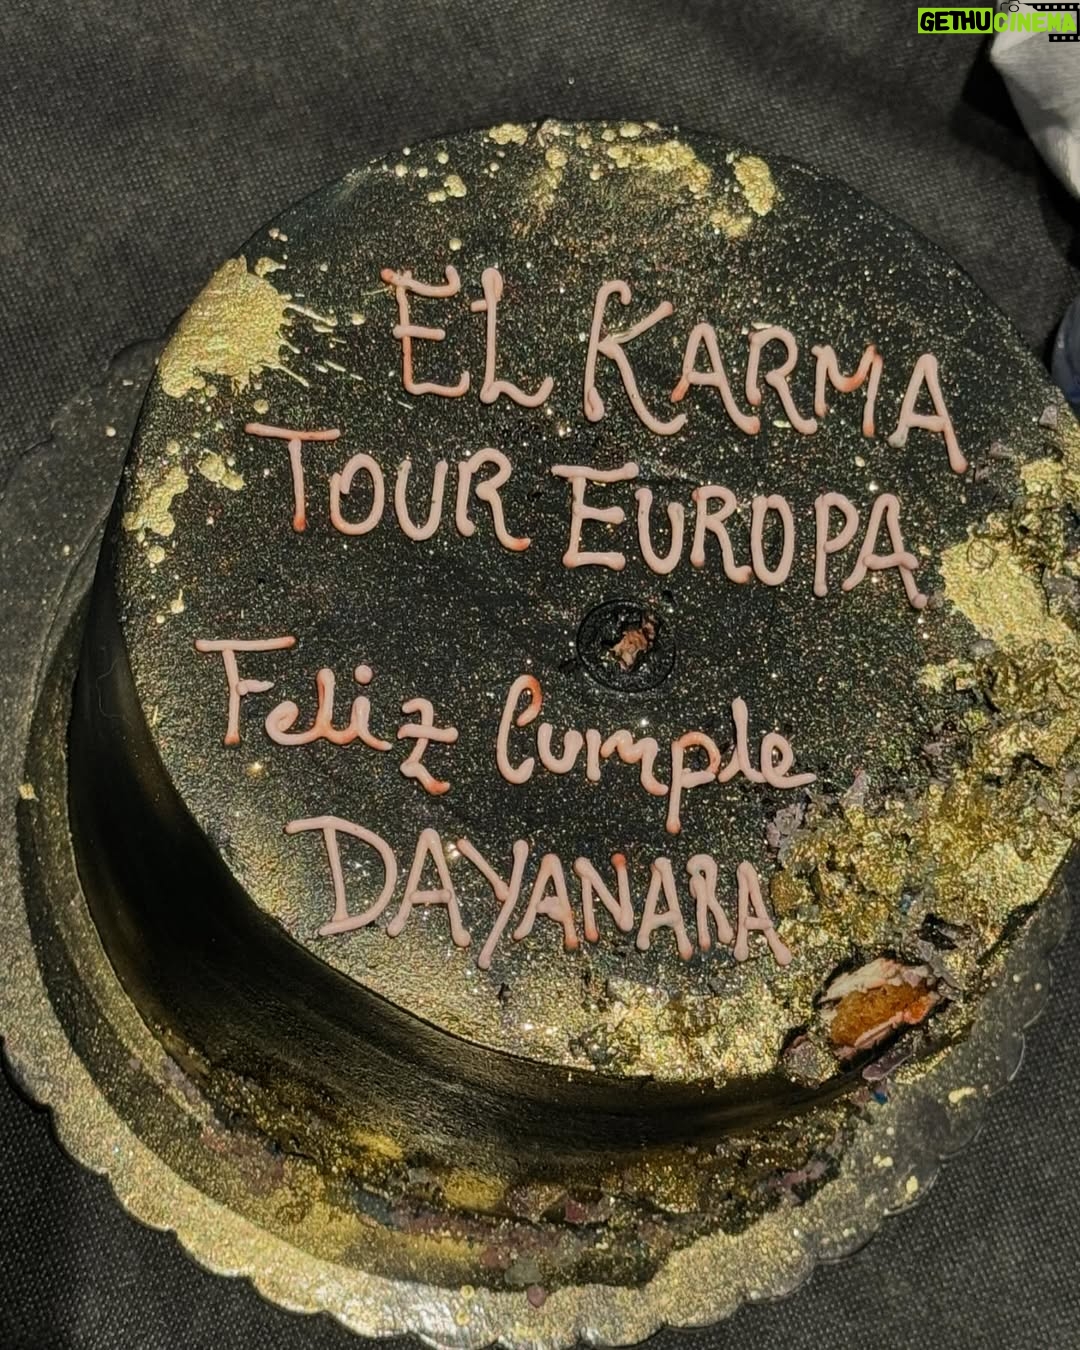 GETHUCINEMA
EL KARMA
TOUR EUROPA
Feliz Cumple
DAYANARA